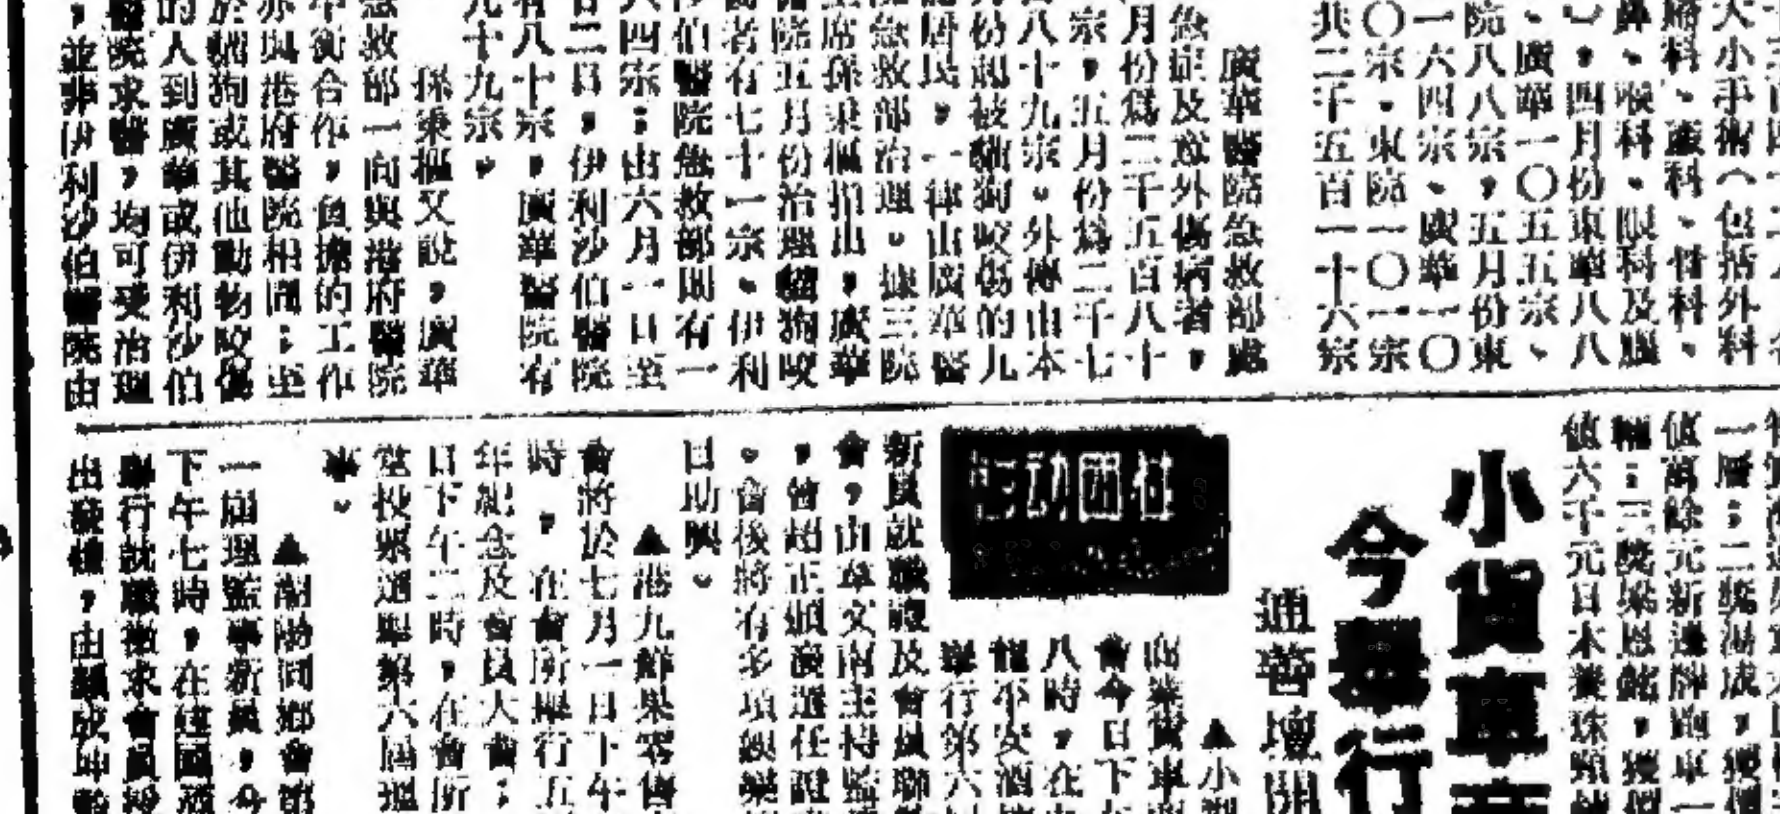 大小手術（包括外科
府科、產科、骨科、
鼻、喉科、眼科及腦
），四月份東華八八
、廣華一〇五五宗、
院八八宗，五月份東
一六四宗、廣華一一〇
〇宗，東院一〇一宗
共二千五百一十六宗
廣華醫院急救部處
急症及意外傷病者，
月份為二千五百八十
宗，五月份為二千七
八十九宗。外傳由本
份起被癲狗咬傷的九
居民，一律由廣華醫
急救部治理。據三院
主席孫秉樞指出，廣華
醫院五月份治理癲狗咬
者有七十一宗、伊利
沙伯醫院急救部則有一
六四宗；由六月一日至
廿二日，伊利沙伯醫院
有八十宗，廣華醫院有
九十九宗。
孫秉樞又說，廣華
急救部一向與港府醫院
平衡合作，負擔的工作
亦與港府醫院相同；至
於癲狗或其他動物咬傷
的人到廣華或伊利沙伯
醫院求醫，均可受治理
，並非伊利沙伯醫院由
一層；二獎湯成，獲
值萬餘元新連牌跑車一
輛；三獎梁恩銘，獲
值六千元日本養珠
小貨車
今舉行
通善壇開
社團動態
▲小
商業貨車
會今日下
八時，在
龍平安酒
舉行第六
新員就職禮及會員聯
會，由韋文南主持監
，曾超正頒發選任證
。會後將有多項娛樂
目助興。
▲港九鮮果零售
會將於七月一日下午
時，在會所舉行五
年紀念及會員大會；
日下午二時，在會所
堂投票選舉第六屆
事。
▲潮陽同鄉會第
一屆理監事新員，今
下午七時，在建國酒
舉行就職徵求會員
出發禮，由顏成坤